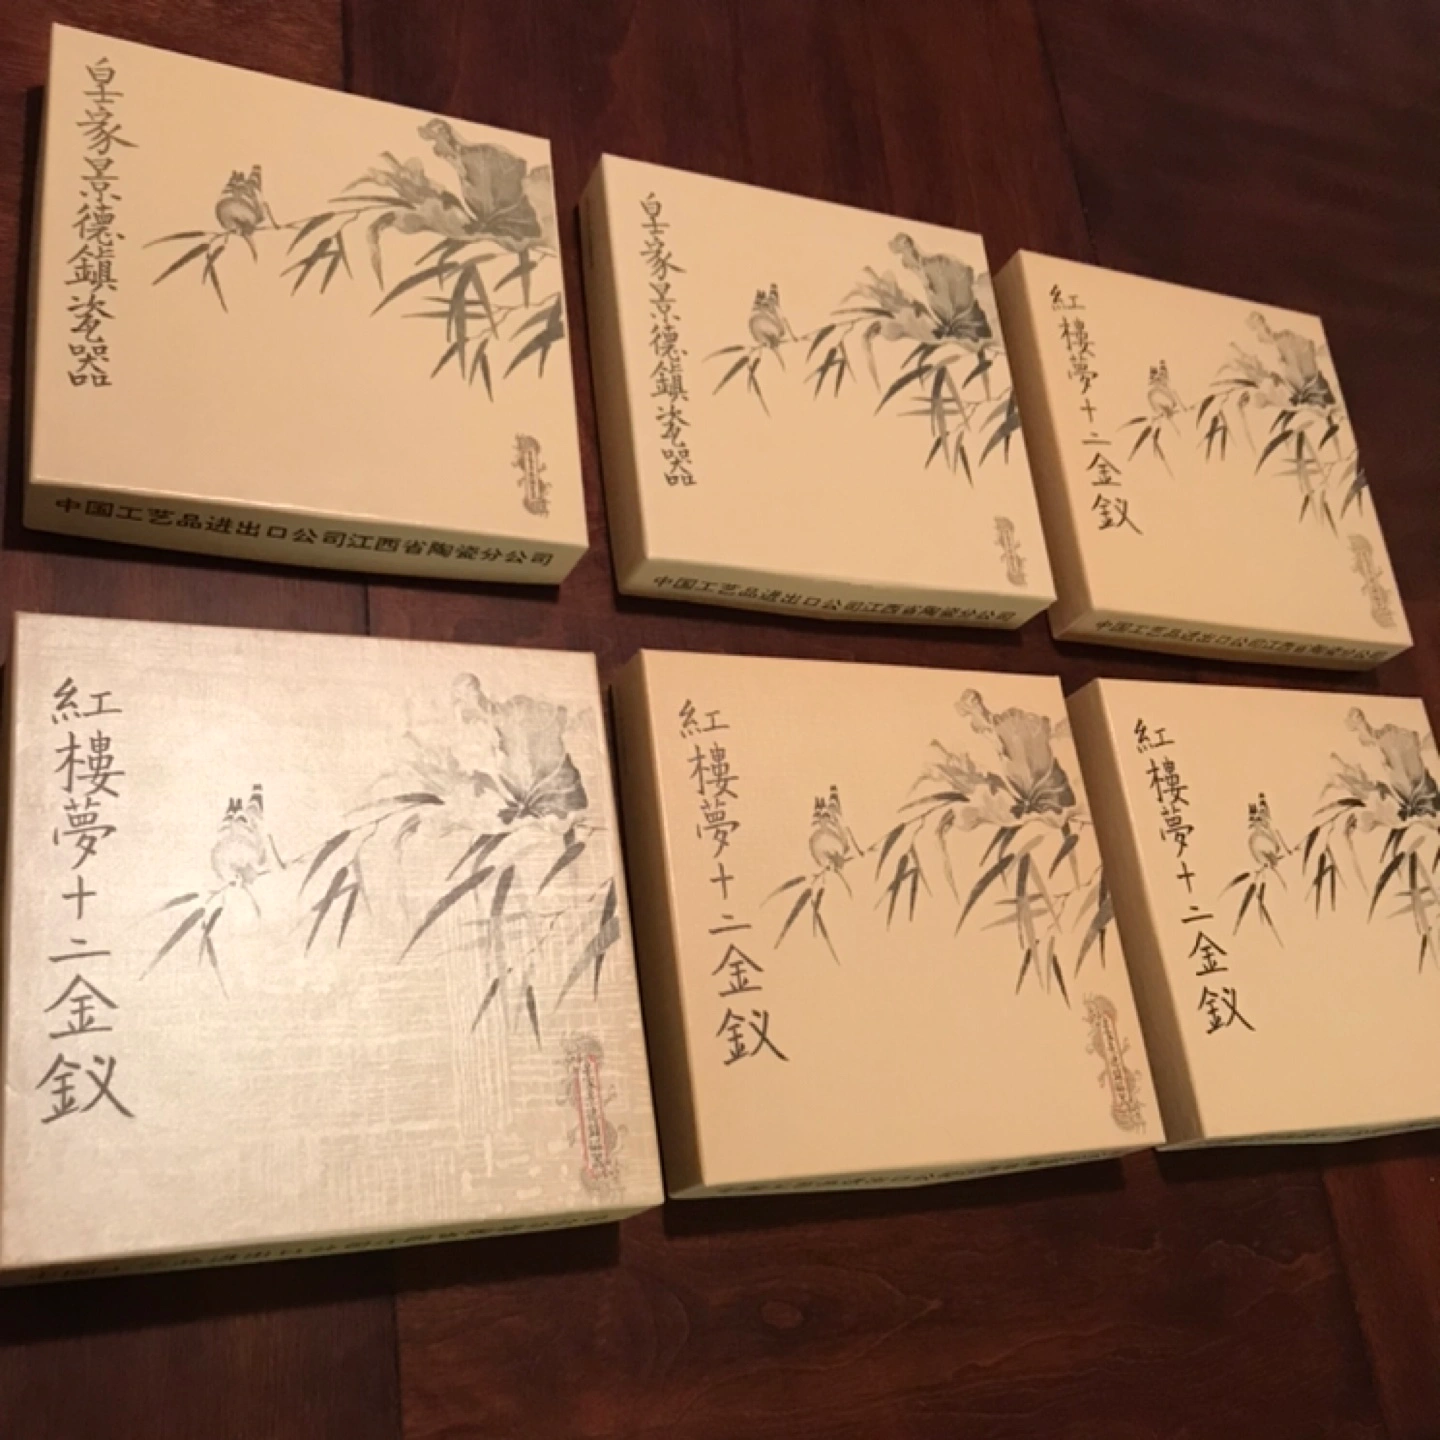 皇家景德鎮瓷器
中国工艺品进出口公司江西省陶瓷分公司
皇家景德鎮瓷器
中国工艺品进出口公司江西省陶瓷分公司
紅樓夢十二金釵
中国工艺品进出口公司江西省陶瓷分公司
紅樓夢十二金釵
紅樓夢十二金釵
紅樓夢十二金釵